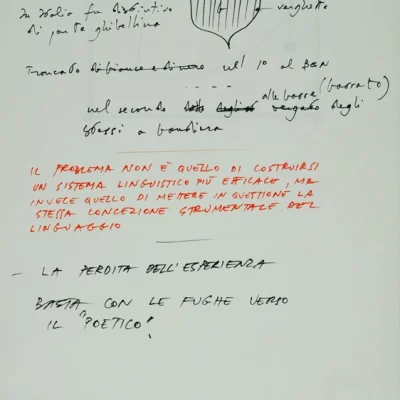 In Italia fu distintivo
di parte ghibellina
verghette
Troncato di bianco e di nero nel 1o al B&N
nel secondo degli vergato degli
alle barre (barrato)
stessi a bandiera
IL PROBLEMA NON È QUELLO DI COSTRUIRSI
UN SISTEMA LINGUISTICO PIÙ EFFICACE, MA
INVECE QUELLO DI METTERE IN QUESTIONE LA
STESSA CONCEZIONE STRUMENTALE DEL
LINGUAGGIO
– LA PERDITA DELL'ESPERIENZA
BASTA CON LE FUGHE VERSO
IL "POETICO"!